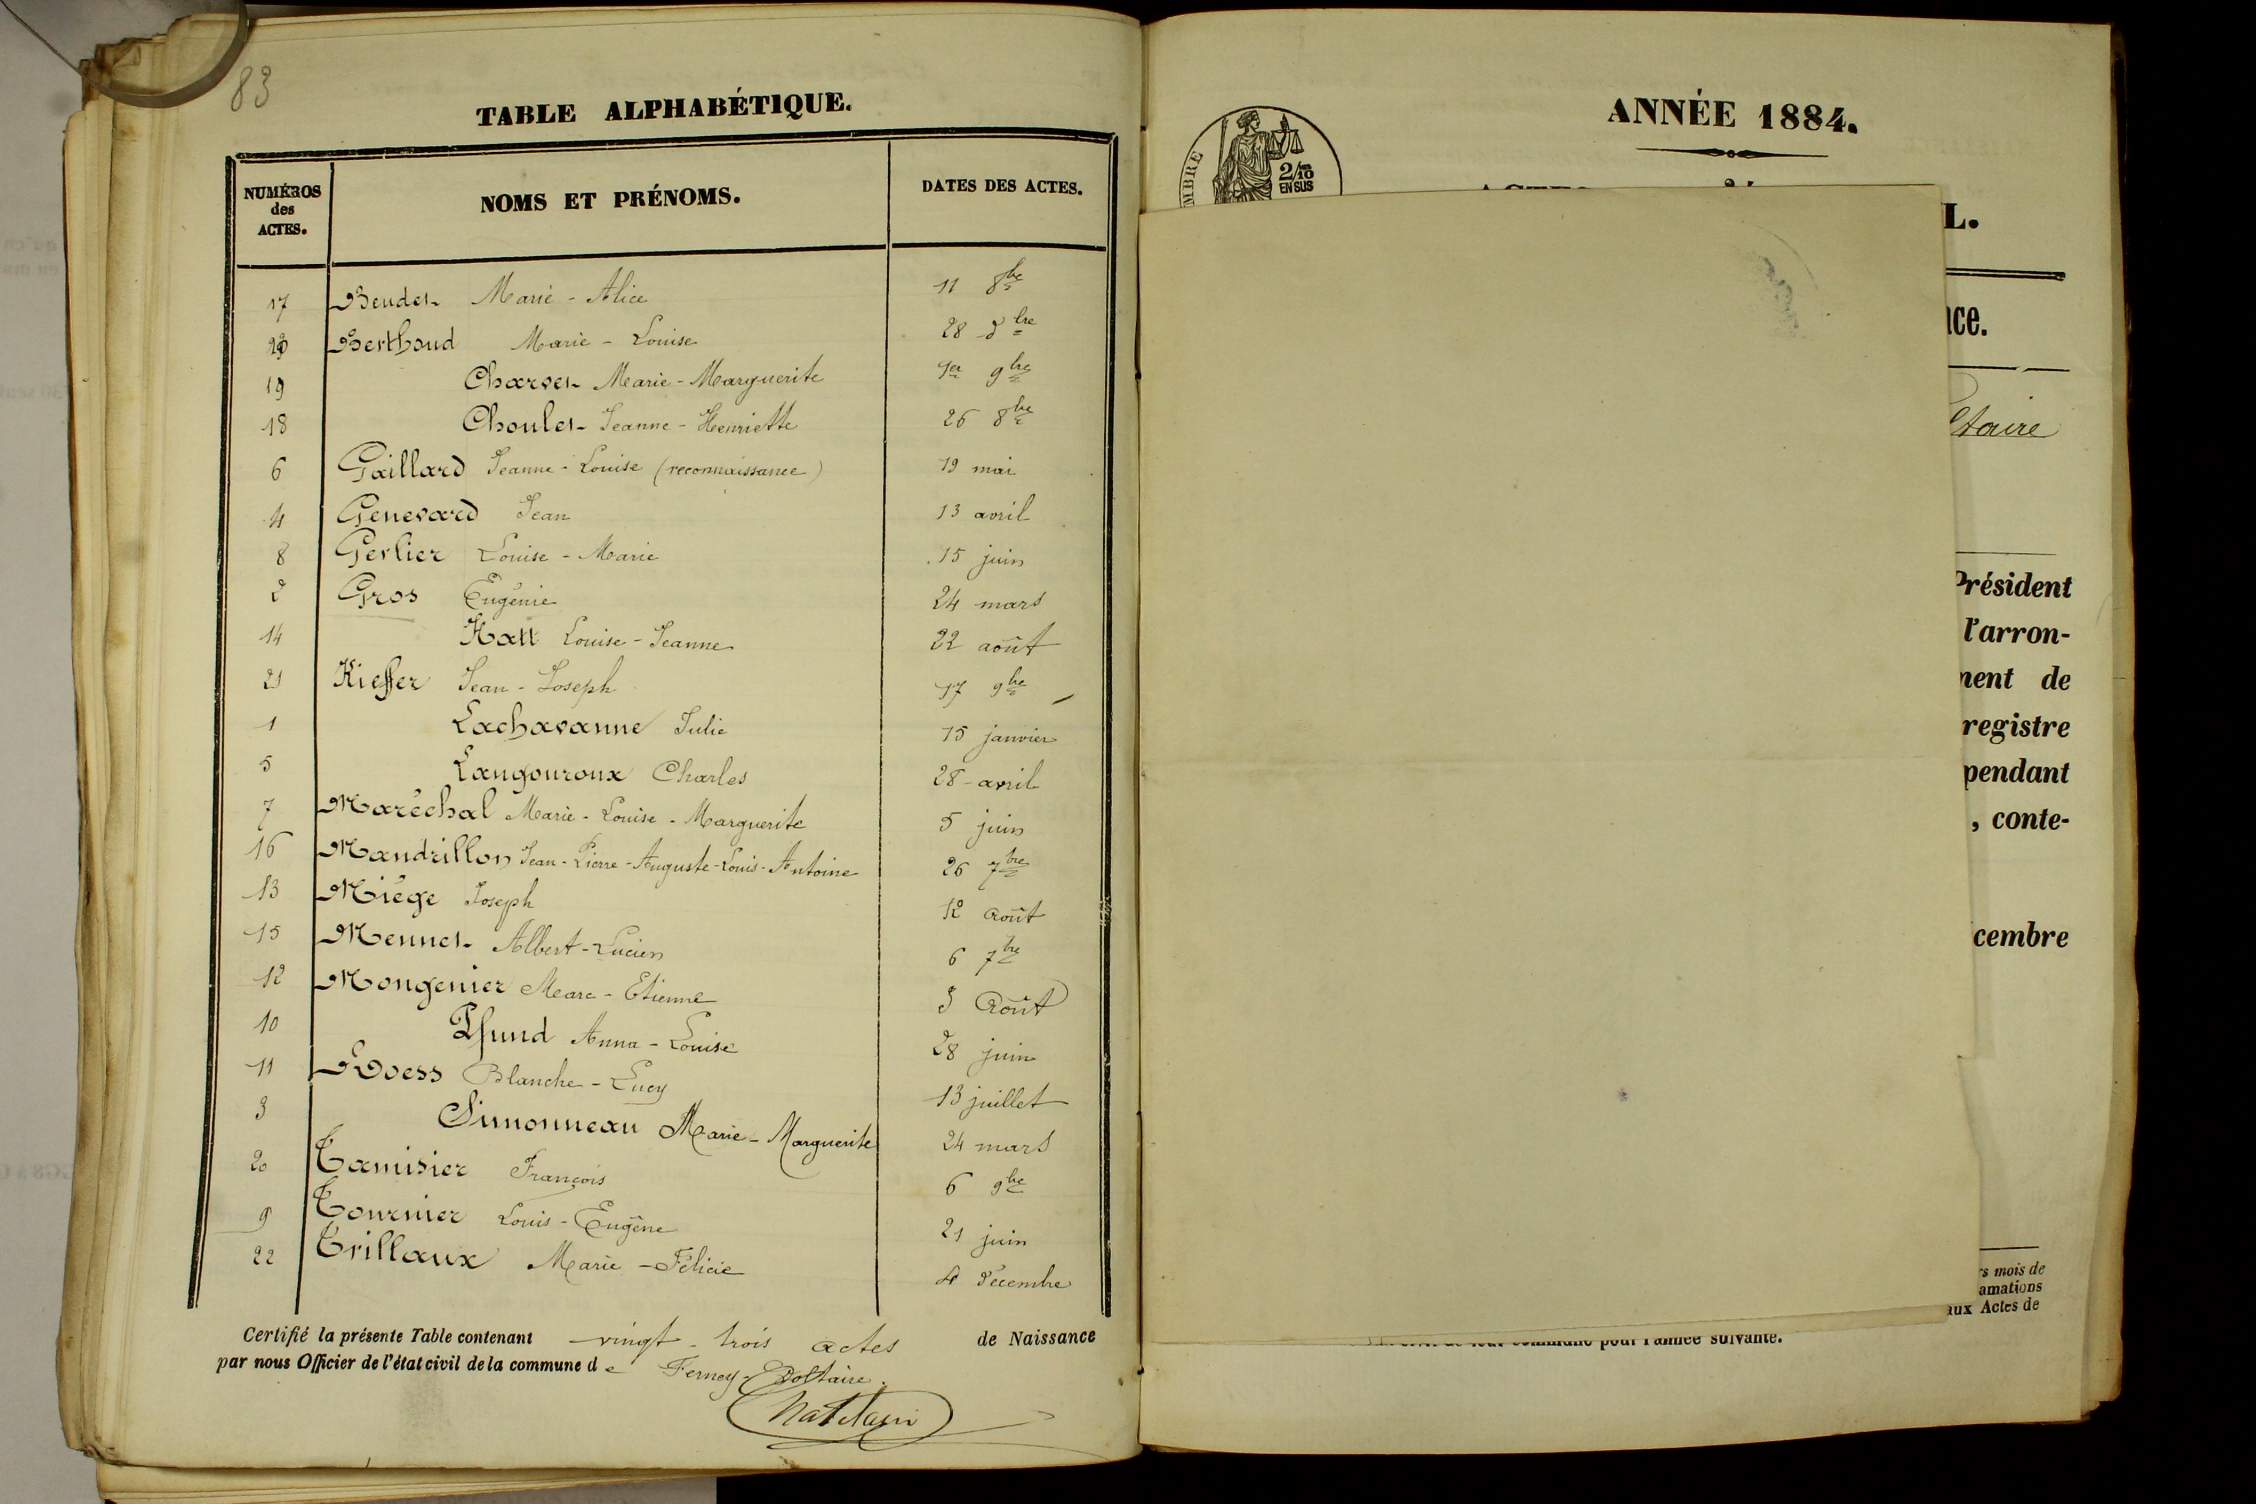 83
TABLE ALPHABÉTIQUE.
NUMÉROS des ACTES. NOMS ET PRÉNOMS. DATES DES ACTES.
17 Beudet Marie - Alice 11 8bre
23 Berthoud Marie - Louise 28 Xbre
19 Charvet Marie - Marguerite 1er 9bre
18 Choulet Jeanne - Henriette 26 8bre
6 Gaillard Jeanne - Louise (reconnaissance) 19 mai
4 Genevard Jean 13 avril
8 Gerlier Louise - Marie 15 juin
2 Gros Eugénie 24 mars
14 Hatt Louise - Jeanne 22 août
21 Kieffer Jean - Joseph 17 9bre
1 Lachavanne Julie 15 janvier
5 Langouroux Charles 28 avril
7 Maréchal Marie - Louise - Marguerite 5 juin
16 Mandrillon Jean - Pierre - Auguste - Louis - Antoine 26 7bre
13 Miège Joseph 12 Août
15 Mennet Albert - Lucien 6 7bre
12 Mongenier Marc - Etienne 3 Août
10 Pfund Anna - Louise 28 juin
11 Roess Blanche - Lucy 13 juillet
3 Simonneau Marie - Marguerite 24 mars
20 Tamisier François 6 9bre
9 Tournier Louis - Eugène 21 juin
22 Trillaux Marie - Félicie décembre
Certifié la présente Table contenant vingt - trois actes de Naissance
par nous Officier de l'état civil de la commune de Ferney - Voltaire.
ANNÉE 1884.
MBRE
2/10
EN SUS
L.
nce.
ltaire
Président
l'arron-
ment de
registre
pendant
, conte-
cembre
rs mois de
amations
aux Actes de
commune pour l'année suivante.